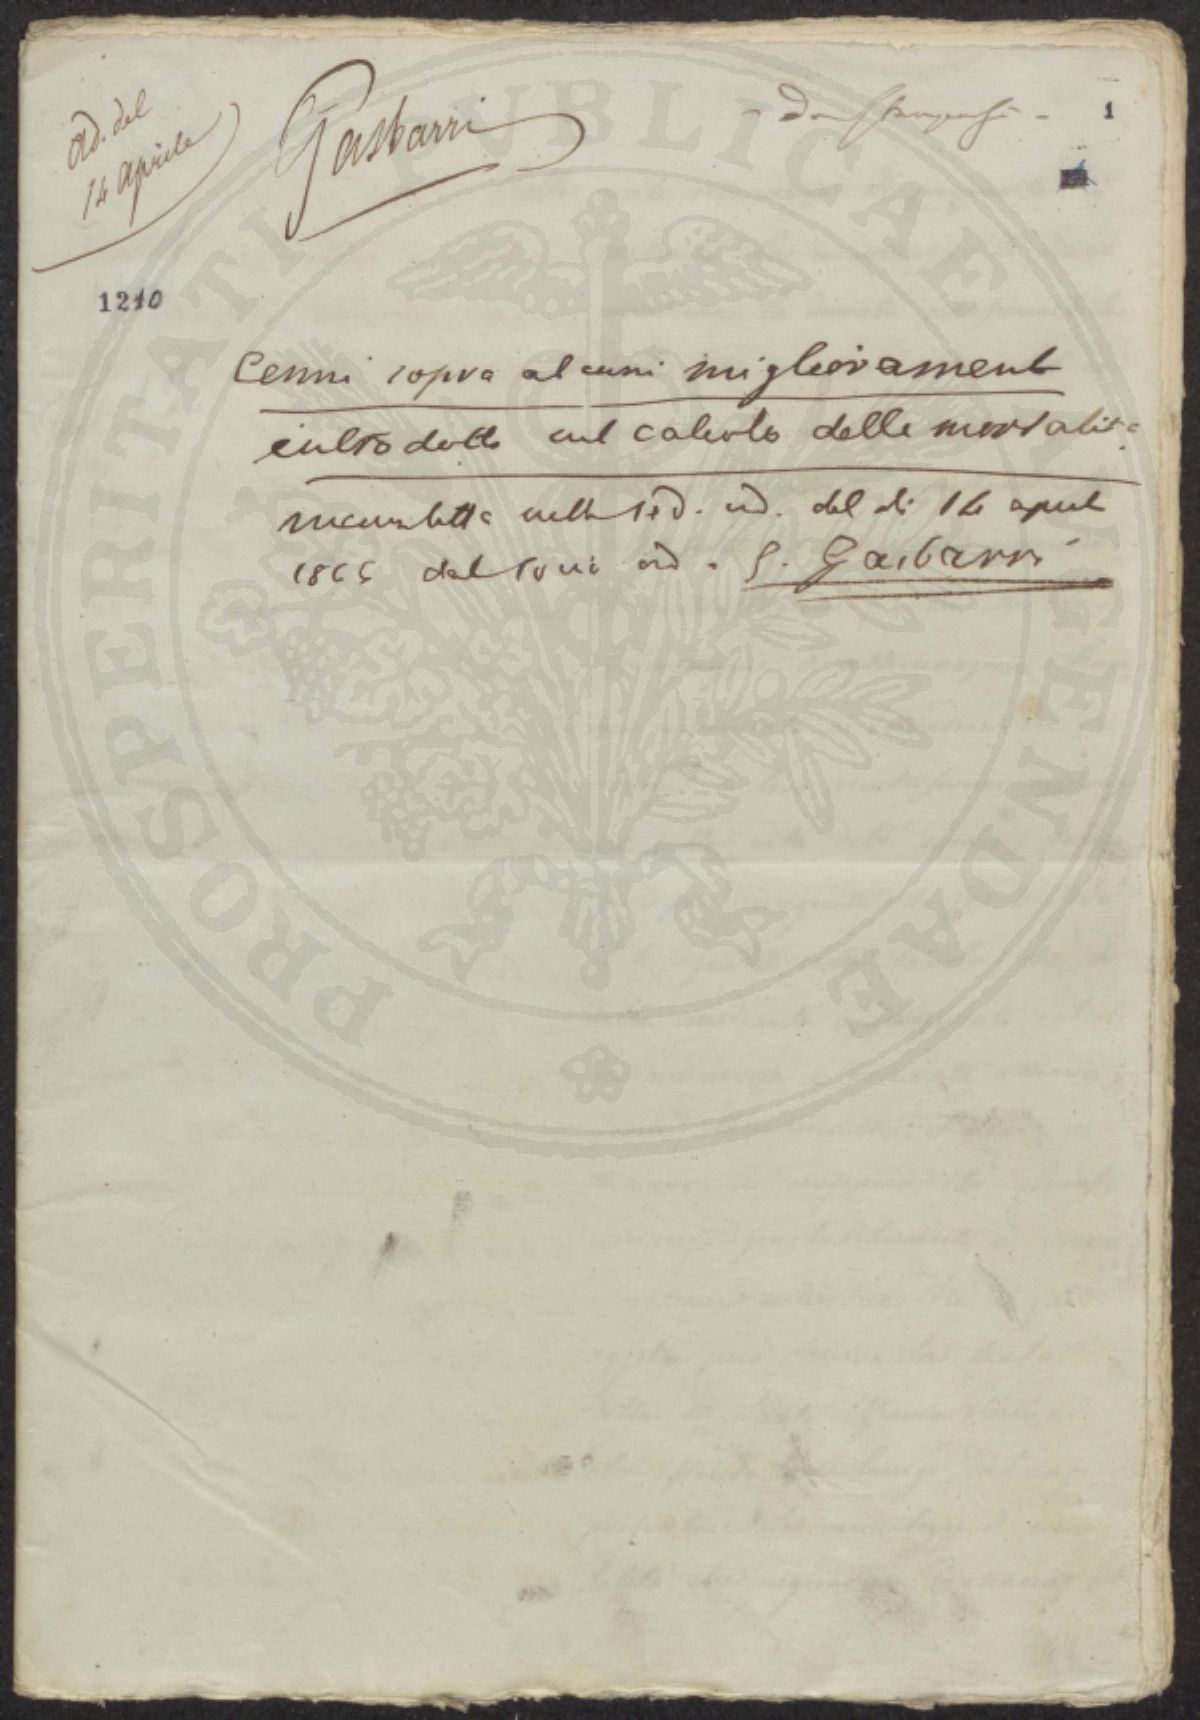 ad. del
14 Aprile
Gasbarri
1
1210
Cenni sopra alcuni miglioramenti
introdotti nel calcolo della mortalità
nella sed. ord. del dì 14 aprile
1865 dal socio ord. G. Gasbarri
PROSPERITATI PUBLICAE AUGENDAE